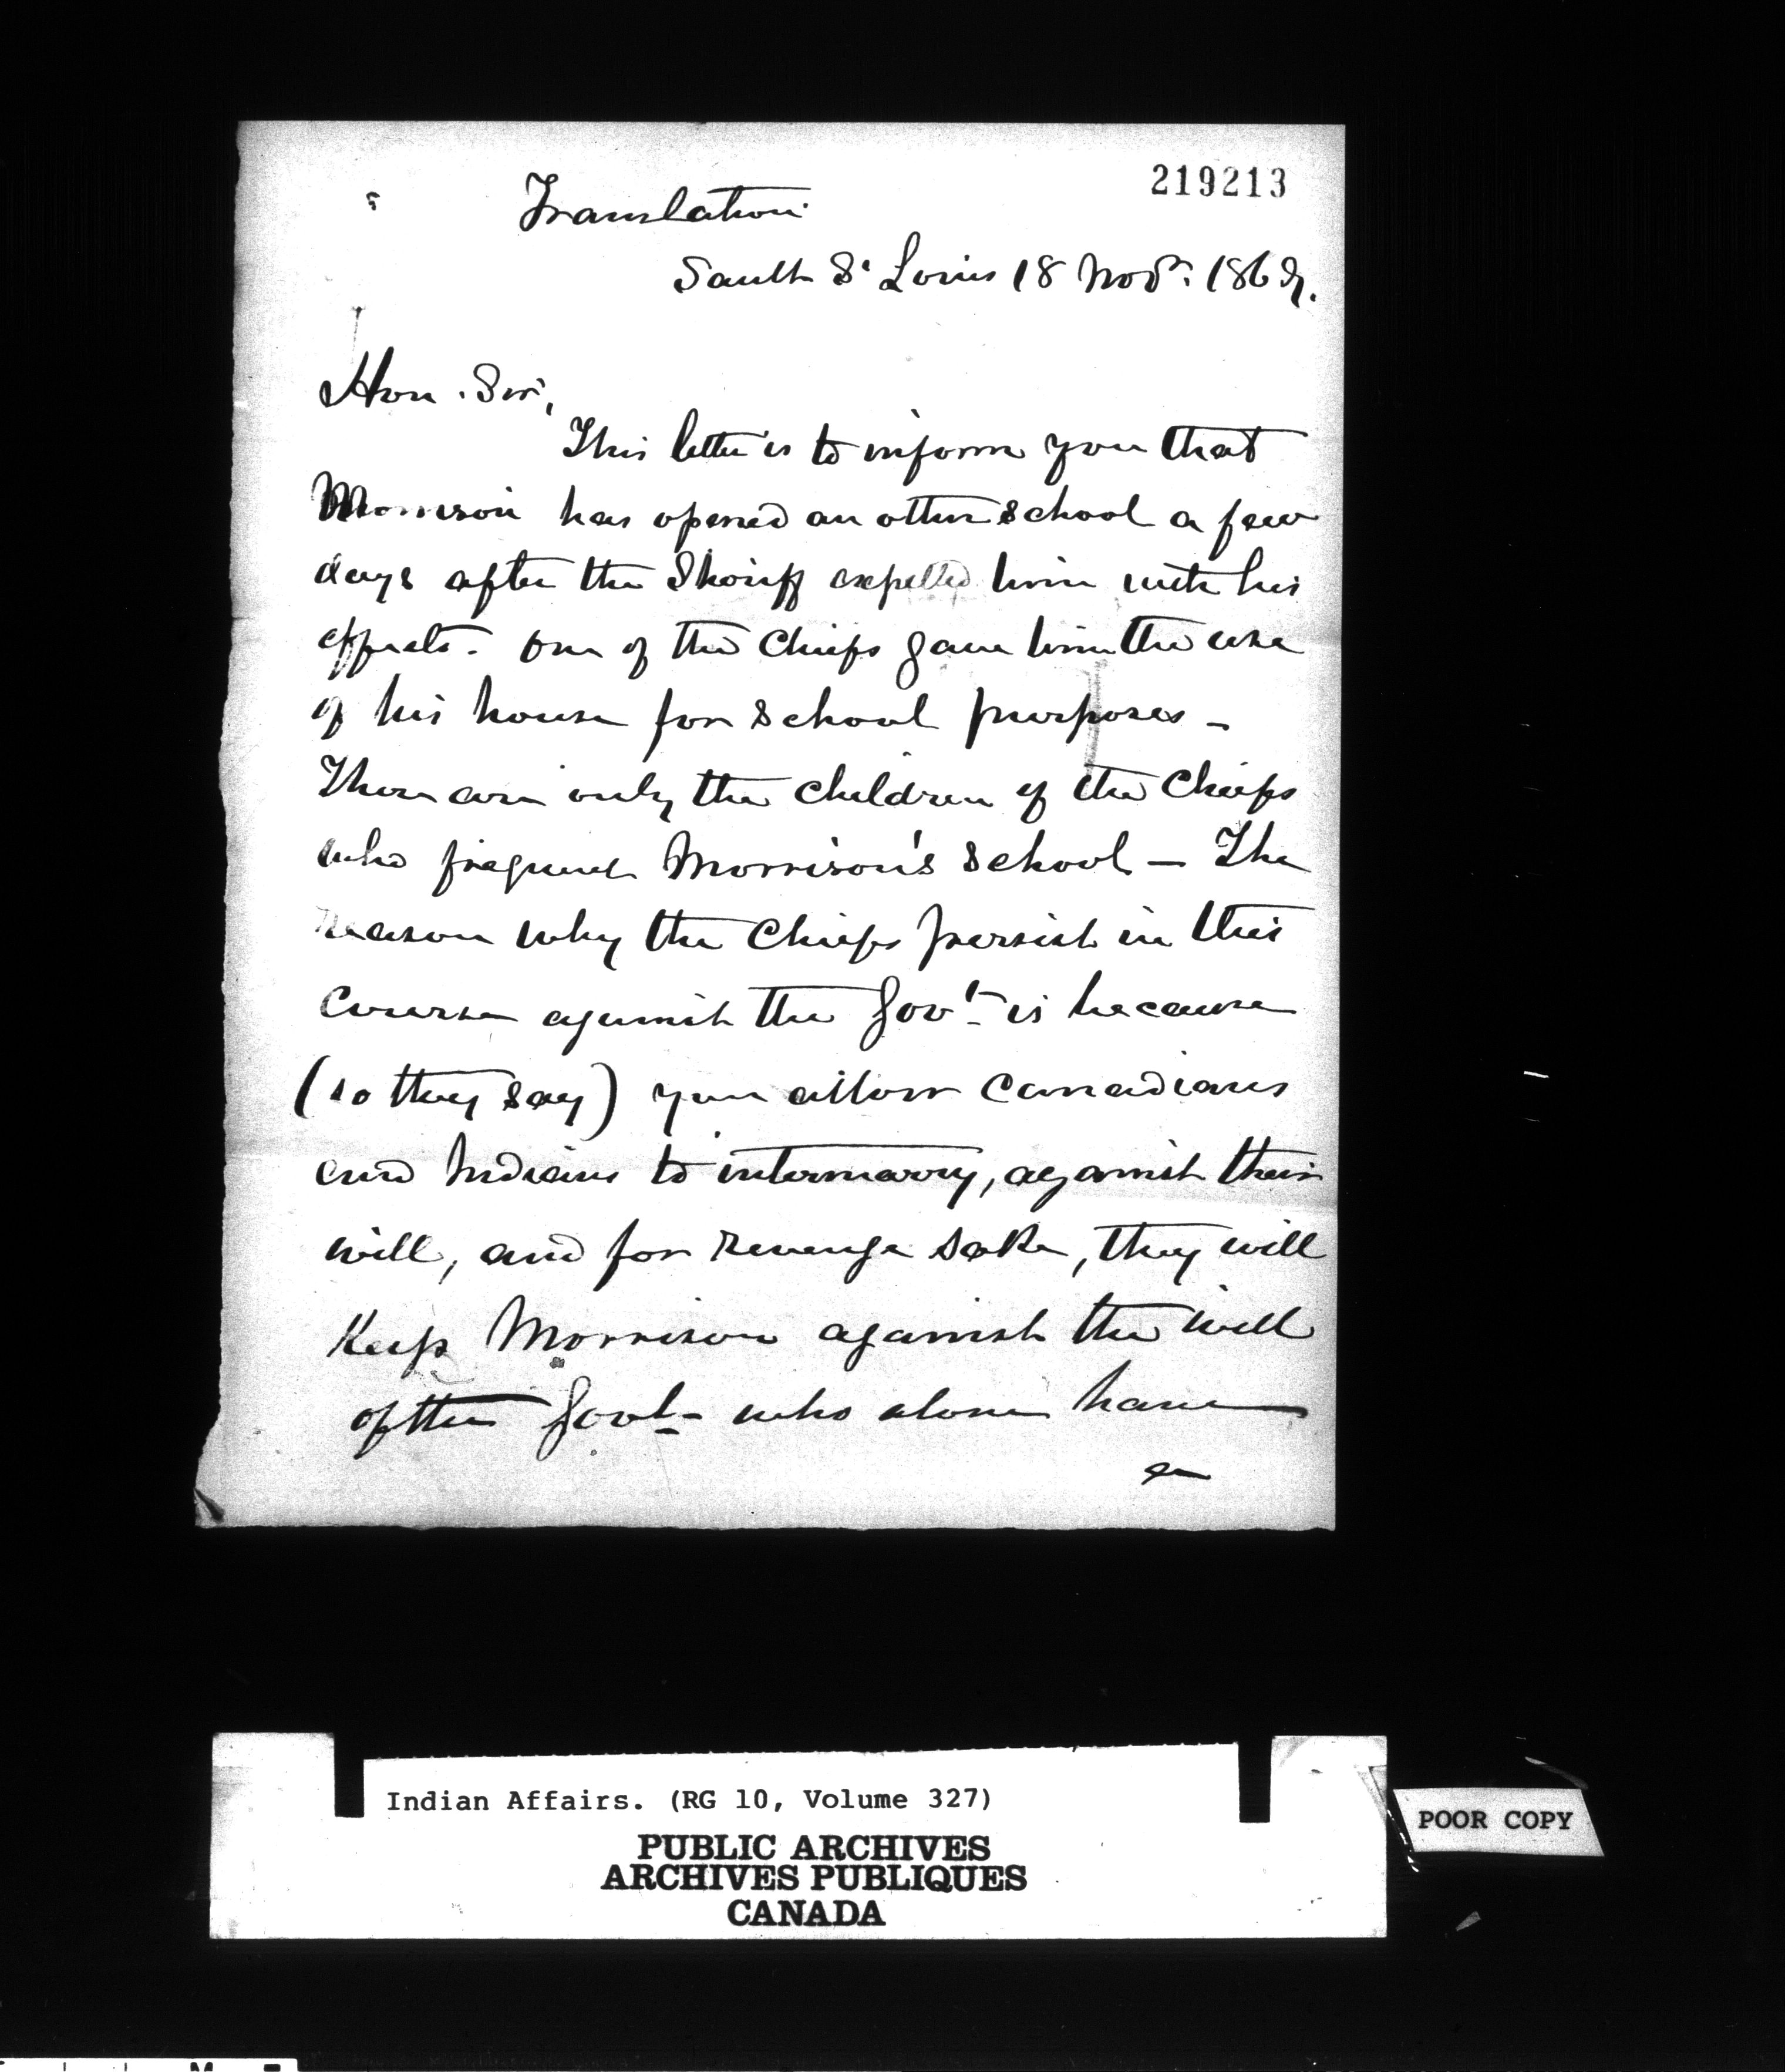 219213
Translation
Sault St Louis 18 Novr. 1869.
Hon. Sir,
This letter is to inform you that
Morrison has opened an other school a few
days after the Sheriff expelled him with his
effects. One of the Chiefs gave him the use
of his house for school purposes -
There are only the children of the Chiefs
who frequent Morrison's school — The
reason why the Chiefs persist in this
course against the Govt. is because
(so they say) you allow Canadians
and Indians to intermarry, against their
will, and for revenge sake, they will
Keep Morrison against the will
of the Govt - who alone have
Indian Affairs. (RG 10, Volume 327)
POOR COPY
PUBLIC ARCHIVES
ARCHIVES PUBLIQUES
CANADA